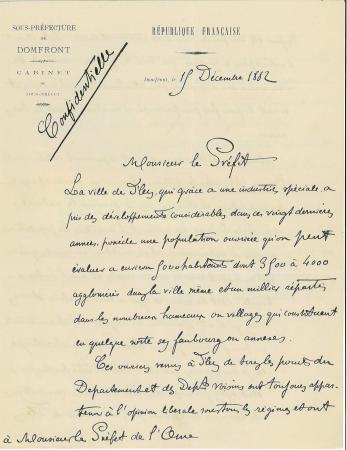 SOUS-PRÉFECTURE
DE
DOMFRONT
CABINET
DU
SOUS-PRÉFET
RÉPUBLIQUE FRANÇAISE
Domfront, le 15 Décembre 1882
Confidentielle
Monsieur le Préfet
La ville de Flers, qui grâce a une industrie spéciale, a
pris des développements considérables dans ces vingt dernières
années, possède une population ouvrière qu'on peut
évaluer a environ 5000 habitants dont 3500 à 4000
agglomérés dans la ville même et un millier répartis
dans les nombreux hameaux ou villages qui constituent
en quelque sorte ses faubourgs ou annexes.
Ces ouvriers venus à Flers de tous les points du
Departement et des Depts voisins ont toujours appar-
tenu à l'opinion liberale sous tous les régimes et ont
à Monsieur le Préfet de l'Orne